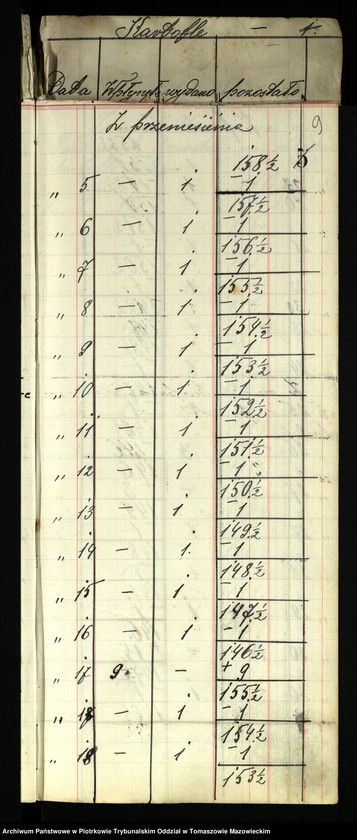 Kartofle — 4.
Data Wpłynęło wydano pozostało
Z przeniesienia 9
158 1/2
„ 5 — 1 — 1
157 1/2
„ 6 — 1 — 1
156 1/2
„ 7 — 1 — 1
155 1/2
„ 8 — 1 — 1
154 1/2
„ 9 — 1 — 1
153 1/2
„ 10 — 1 — 1
152 1/2
„ 11 — 1 — 1
151 1/2
„ 12 — 1 — 1 „
150 1/2
„ 13 — 1 — 1
149 1/2
„ 14 — 1 — 1
148 1/2
„ 15 — 1 — 1
147 1/2
„ 16 — 1 — 1
146 1/2
„ 17 9. — + 9
155 1/2
„ 18 — 1 — 1
154 1/2
„ 18 — 1 — 1
153 1/2
Archiwum Państwowe w Piotrkowie Trybunalskim Oddział w Tomaszowie Mazowieckim